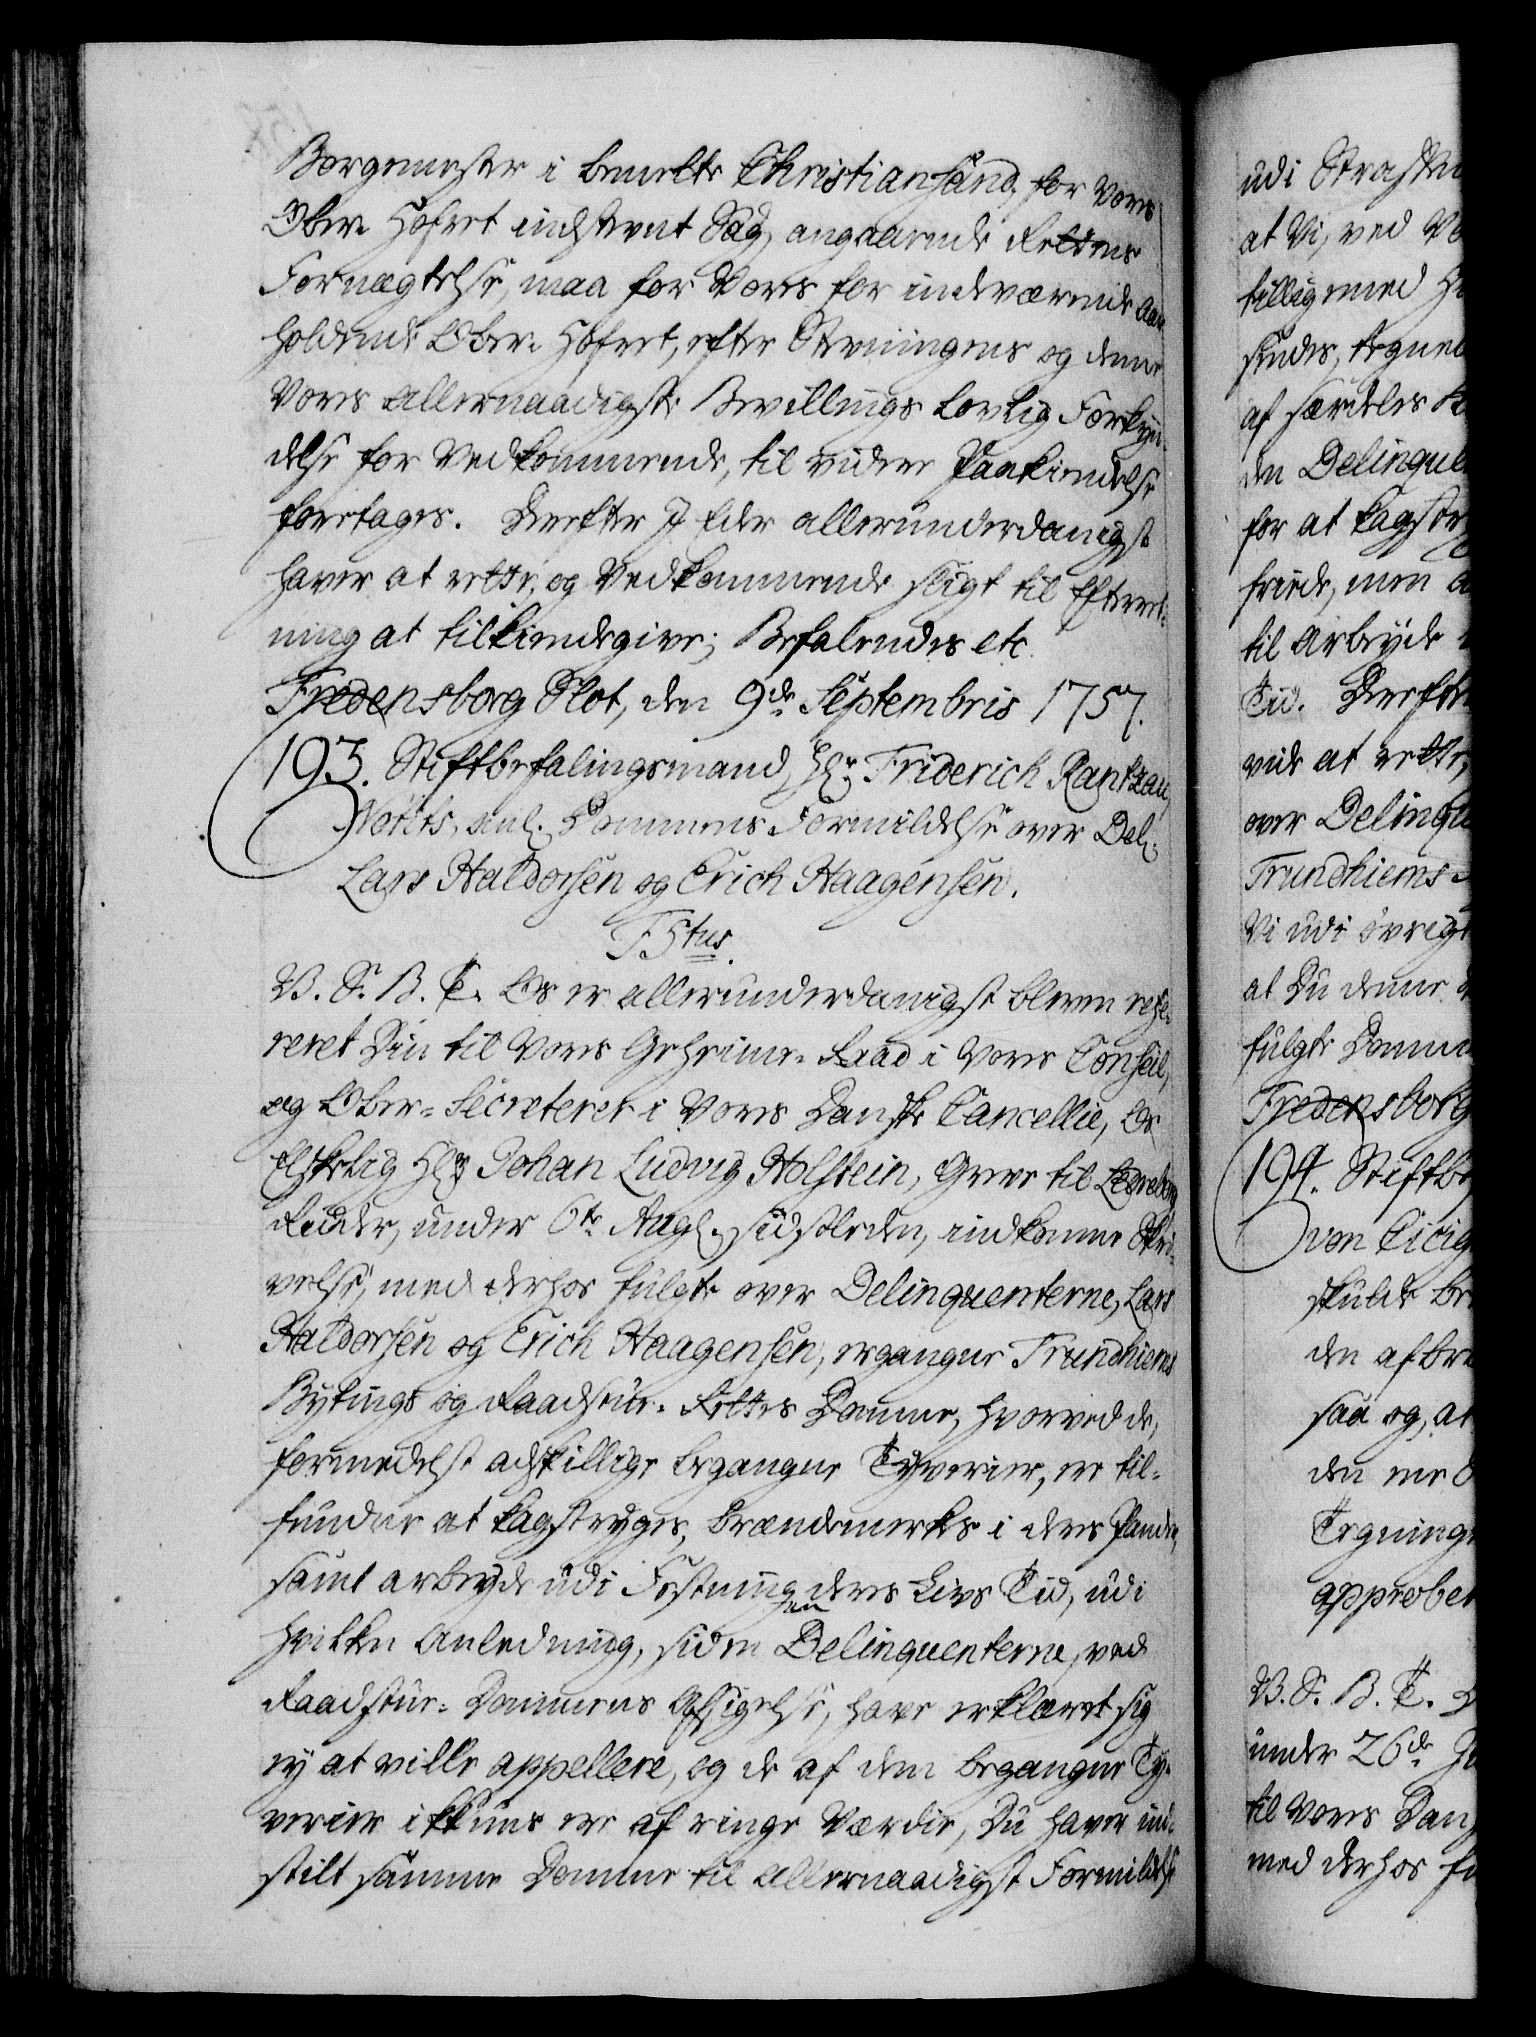 Borgemester i bemelte Christiansand, for Vores
Ober-Hofret indstevnt Sag, angaaende Rettens
Fornægtelse, maa for Vores for indeværende Aar
holdende Ober-Hofret, efter Stevningens og denne
Vores allernaadigste Bevillings lovlig Forkyn-
delse for Vedkommende, til videre Paakiendelse
foretages. Derefter I Eder allerunderdanigst
haver at rette, og Vedkommende sligt til Efterret-
ning at tilkiendegive; Befalendes etc.
Fredensborg Slot, den 9de Septembris 1757.
193. Stiftbefalingsmand, Hr. Friderich Rantzau,
Notits, anl. Dommens Formildelse over Del:
Lars Haldorsen og Erich Haagensen.
F5tus.
V. S. B. T. Os er allerunderdanigst bleven refe-
reret Din til Vores Geheime-Raad i Vores Conseil,
og Ober-Secreterer i Vores Danske Cancellie, Os
Elskelig Hr. Johan Ludvig Holstein, Greve til Ledreborg
Ridder, under 6te Aug. sidstleden, indkomne Skri-
velse, med derhos fulgte over Delinquenterne, Lars
Haldorsen og Erich Haagensen, ergangne Trundhiems
Bytings og Raadstue-Rettes Domme, hvorved de,
formedelst adskillige begangne Tyverier, ere til-
fundne at kagstryges, brændemerkes i deres Pander,
samt arbeyde udi Fæstningen deres Livs Tid, udi
hvilken Anledning, siden Delinquenterne, ved
Raadstue-Dommens Afsigelse, have erklæret sig
ey at ville appellere, og de af dem begangne Ty-
verier ikkuns ere af ringe Værdie, Du haver ind-
stilt samme Domme til allernaadigst Formildelse
udi Straffen
at Vi, ved
tilligemed
sindes, tegned
af særdeles
den Delinque
for at kagstry
friede, men
til Arbeyde
Tid. Derefter
vide at rette,
over Delinque
Trundhiems
Vi udi øvrigt
at Du denne
fulgte Domme
Fredensborg
194. Stiftbe
von Cicig
skulde
den af
saa og, at
den
Tegning
approber
V. S. B. T.
under 26de
til Vores Dan
med derhos